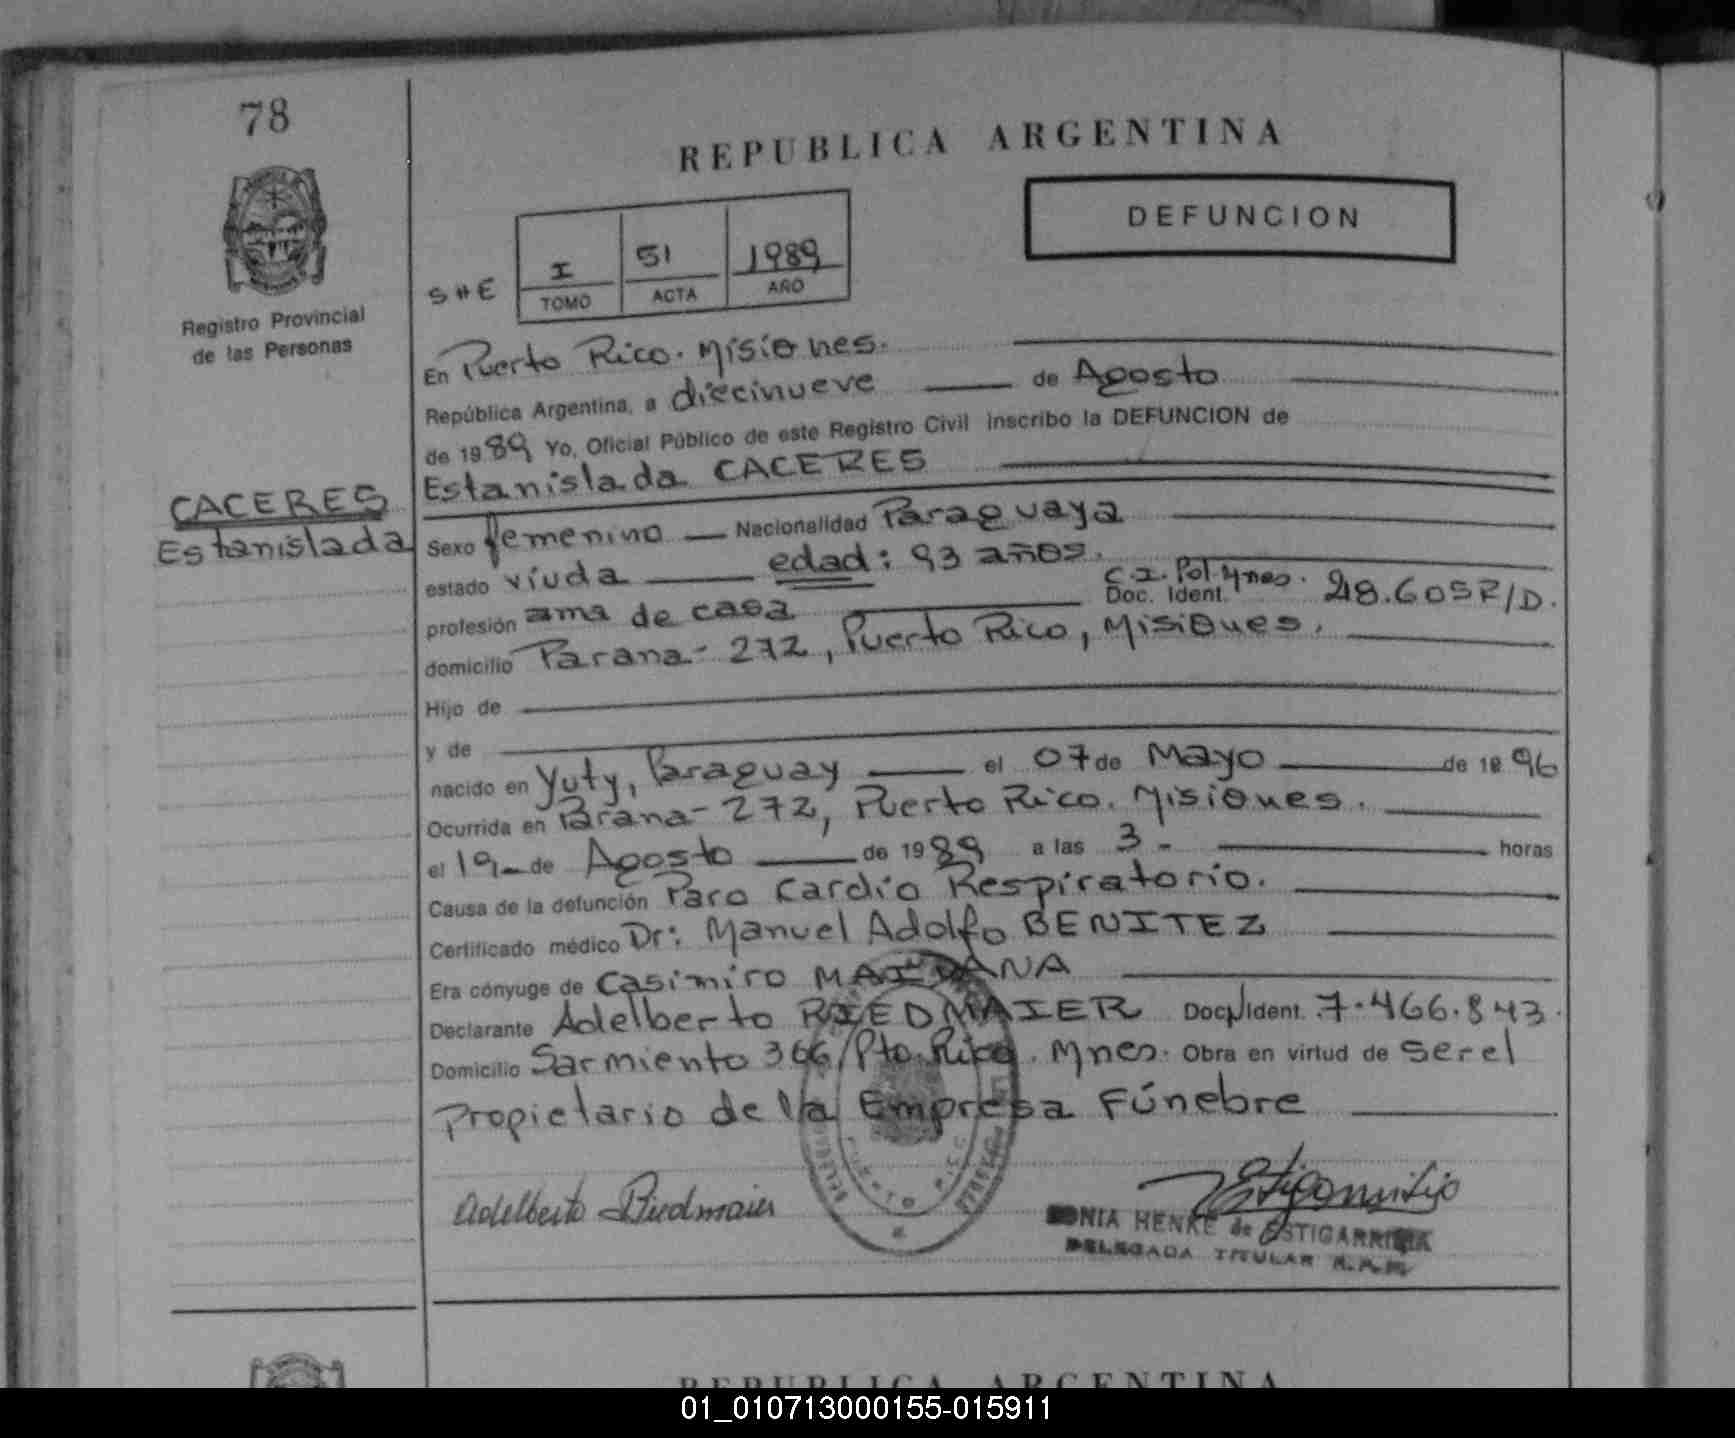 78
REPUBLICA ARGENTINA
DEFUNCION
Registro Provincial
de las Personas
S#E
I 51 1989
TOMO ACTA AÑO
En Puerto Rico. Misiones.
República Argentina, a diecinueve de Agosto
de 1989 Yo, Oficial Público de este Registro Civil inscribo la DEFUNCION de
Estanislada CACERES
CACERES
Estanislada
Sexo femenino Nacionalidad Paraguaya
estado viuda edad: 93 años.
profesión ama de casa C.I. Pol. Mnes. Doc. Ident.
domicilio Parana- 272, Puerto Rico, Misiones.
Hijo de
y de
nacido en Yuty, Paraguay el 07 de Mayo de 18 96
Ocurrida en Parana- 272, Puerto Rico. Misiones.
el 19 de Agosto de 1989 a las 3- horas
Causa de la defunción Paro Cardio Respiratorio.
Certificado médico Dr: Manuel Adolfo BENITEZ
Era cónyuge de Casimiro MAIDANA
Declarante Adelberto RIEDMAIER Doc. Ident. 7.466.843.
Domicilio Sarmiento 366/Pto. Rico. Mnes. Obra en virtud de ser el
Propietario de la Empresa Fúnebre
Adelberto Riedmaier
SONIA HENKE de ESTIGARRIBIA
DELEGADA TITULAR R.P.P.
REPUBLICA ARGENTINA
01_010713000155-015911